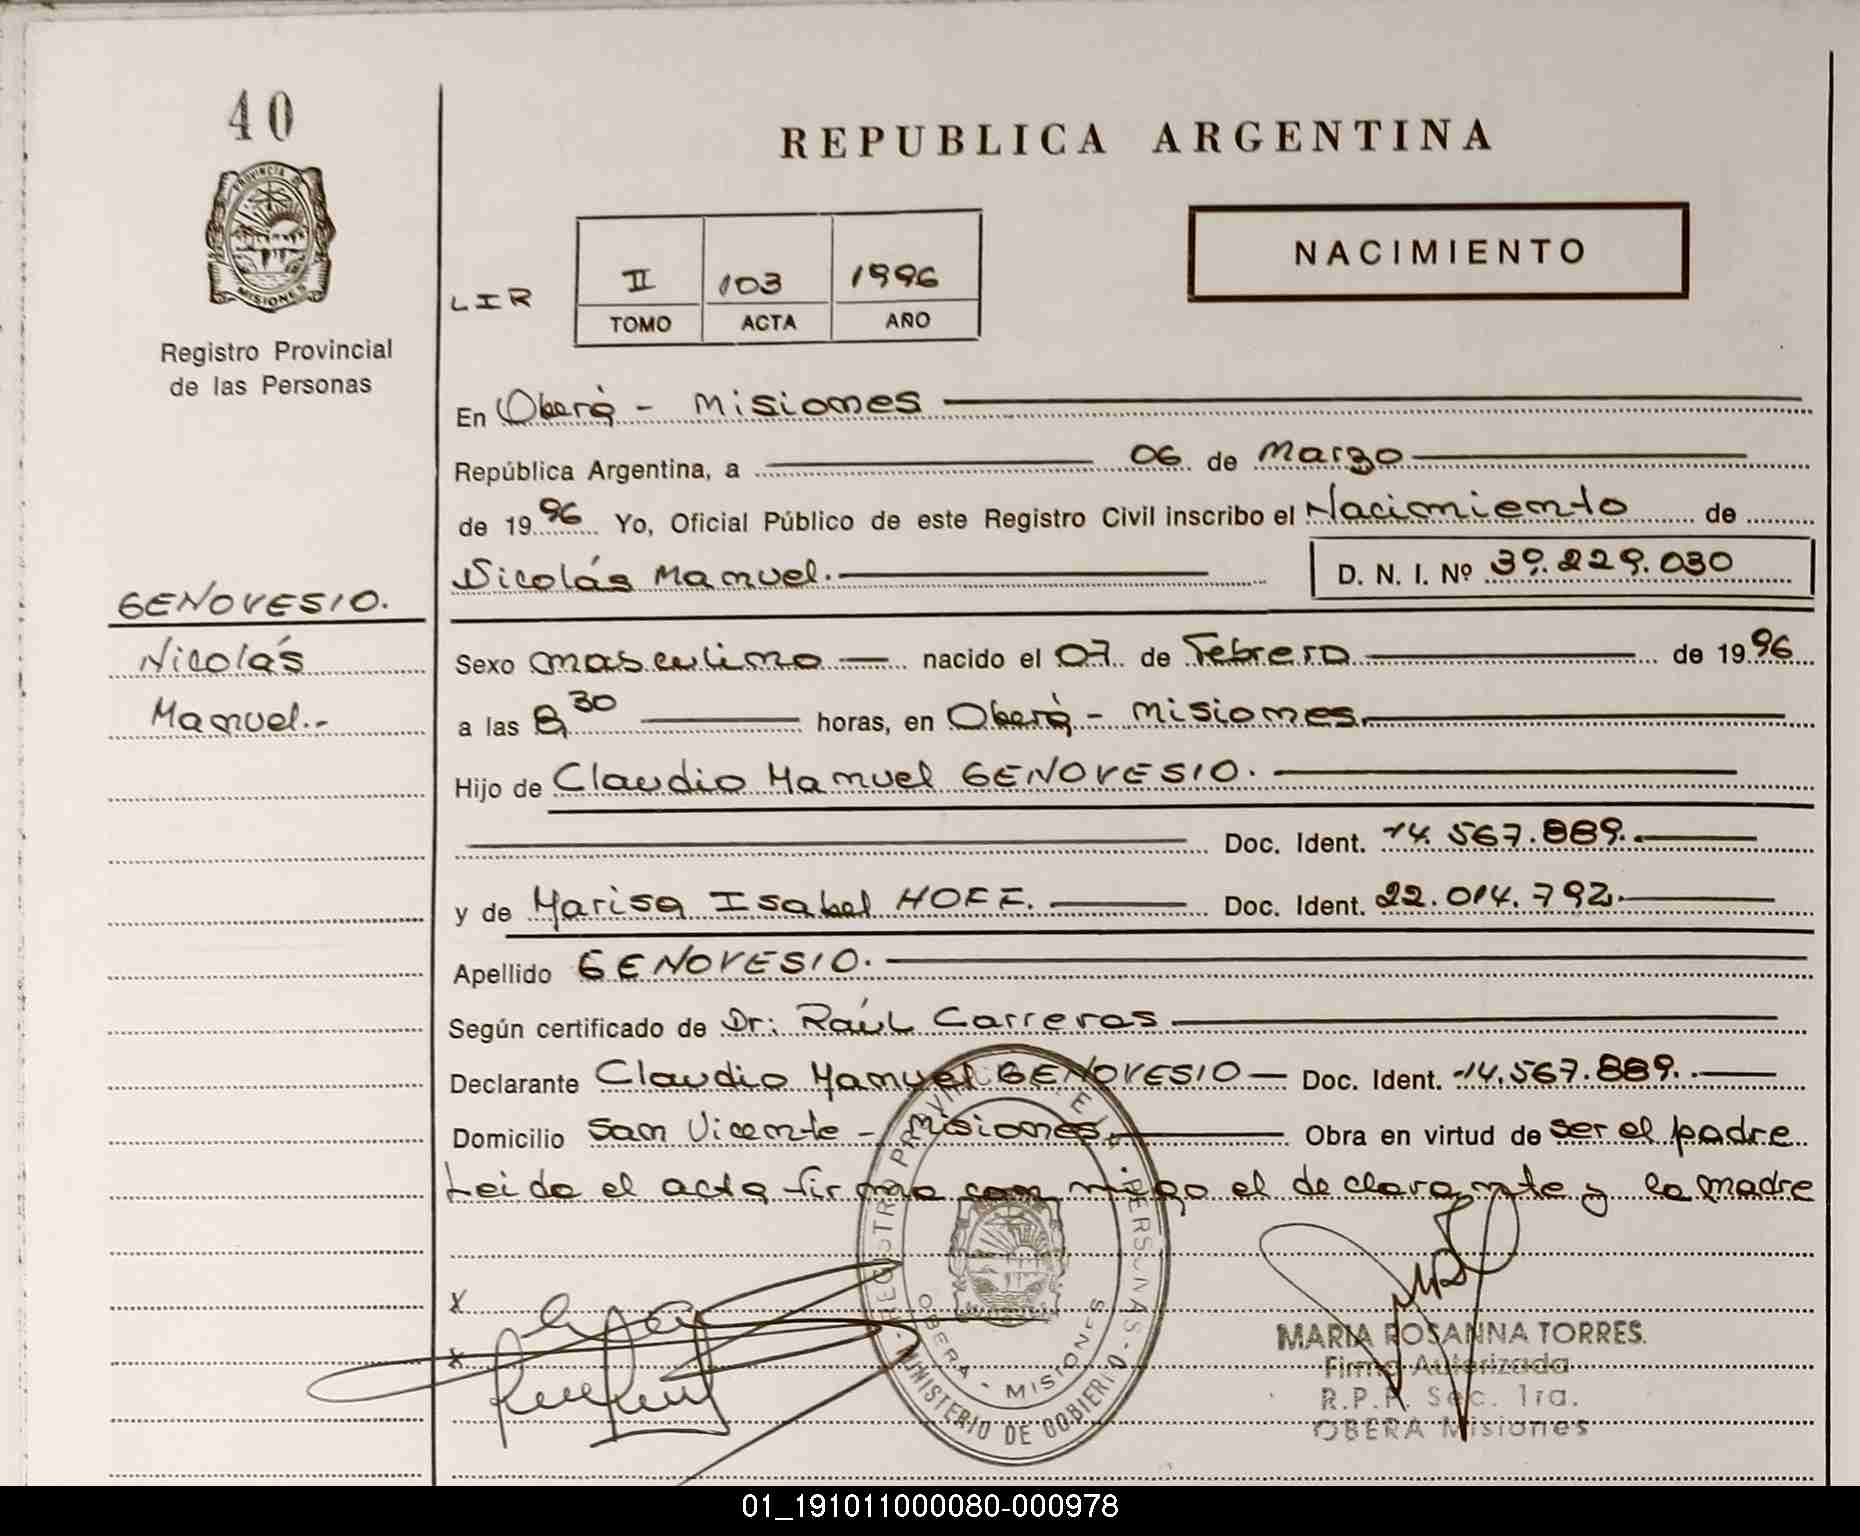 40
PROVINCIA DE
MISIONES
Registro Provincial
de las Personas
REPUBLICA ARGENTINA
NACIMIENTO
LIR
II 103 1996
TOMO ACTA AÑO
En Oberá - Misiones
República Argentina, a 06 de Marzo
de 1996 Yo, Oficial Público de este Registro Civil inscribo el Nacimiento de
Nicolás Manuel. D. N. I. Nº 39.229.030
GENOVESIO.
Nicolás
Manuel.-
Sexo masculino nacido el 07 de Febrero de 1996
a las 8,30 horas, en Oberá - Misiones.
Hijo de Claudio Manuel GENOVESIO.
Doc. Ident. 14.567.889.
y de Marisa Isabel HOFF. Doc. Ident. 22.014.792.
Apellido GENOVESIO.
Según certificado de Dr: Raúl Carreras
Declarante Claudio Manuel GENOVESIO Doc. Ident. 14.567.889.
Domicilio San Vicente - Misiones. Obra en virtud de ser el padre
Leida el acta firma con migo el declarante y la madre
x
x
OBERA - MISIONES
MINISTERIO DE GOBIERNO
MARIA ROSANNA TORRES.
Firma Autorizada
R.P.P. Sec. 1ra.
OBERA Misiones
01_191011000080-000978